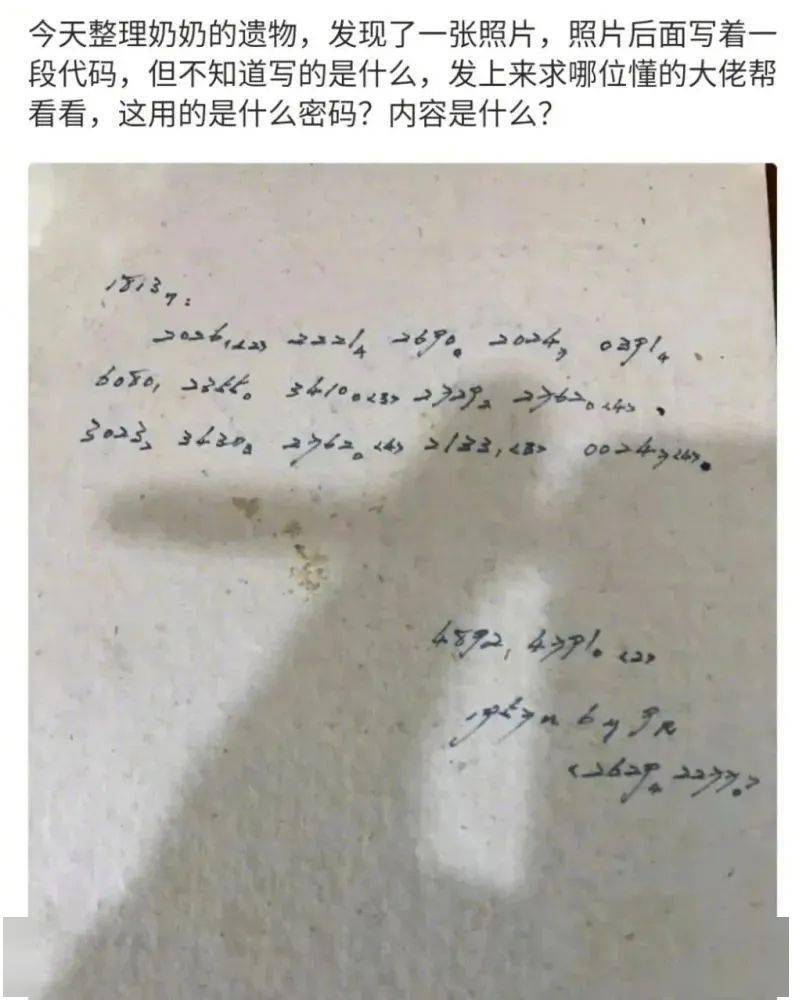 今天整理奶奶的遗物，发现了一张照片，照片后面写着一
段代码，但不知道写的是什么，发上来求哪位懂的大佬帮
看看，这用的是什么密码？内容是什么？
1813₇:
2026₁<2> 2221₄ 2690₀ 2024₇ 0391₄.
6080₁ 2355₀ 3410₀<3> 2729₂ 2762₀<4>,
3023₂ 3430₈ 2762₀<4> 2133₁<3> 0024₇<4>.
4892₁ 4791₀<2>
1957n 6y 9R
<2629₄ 2277₀>